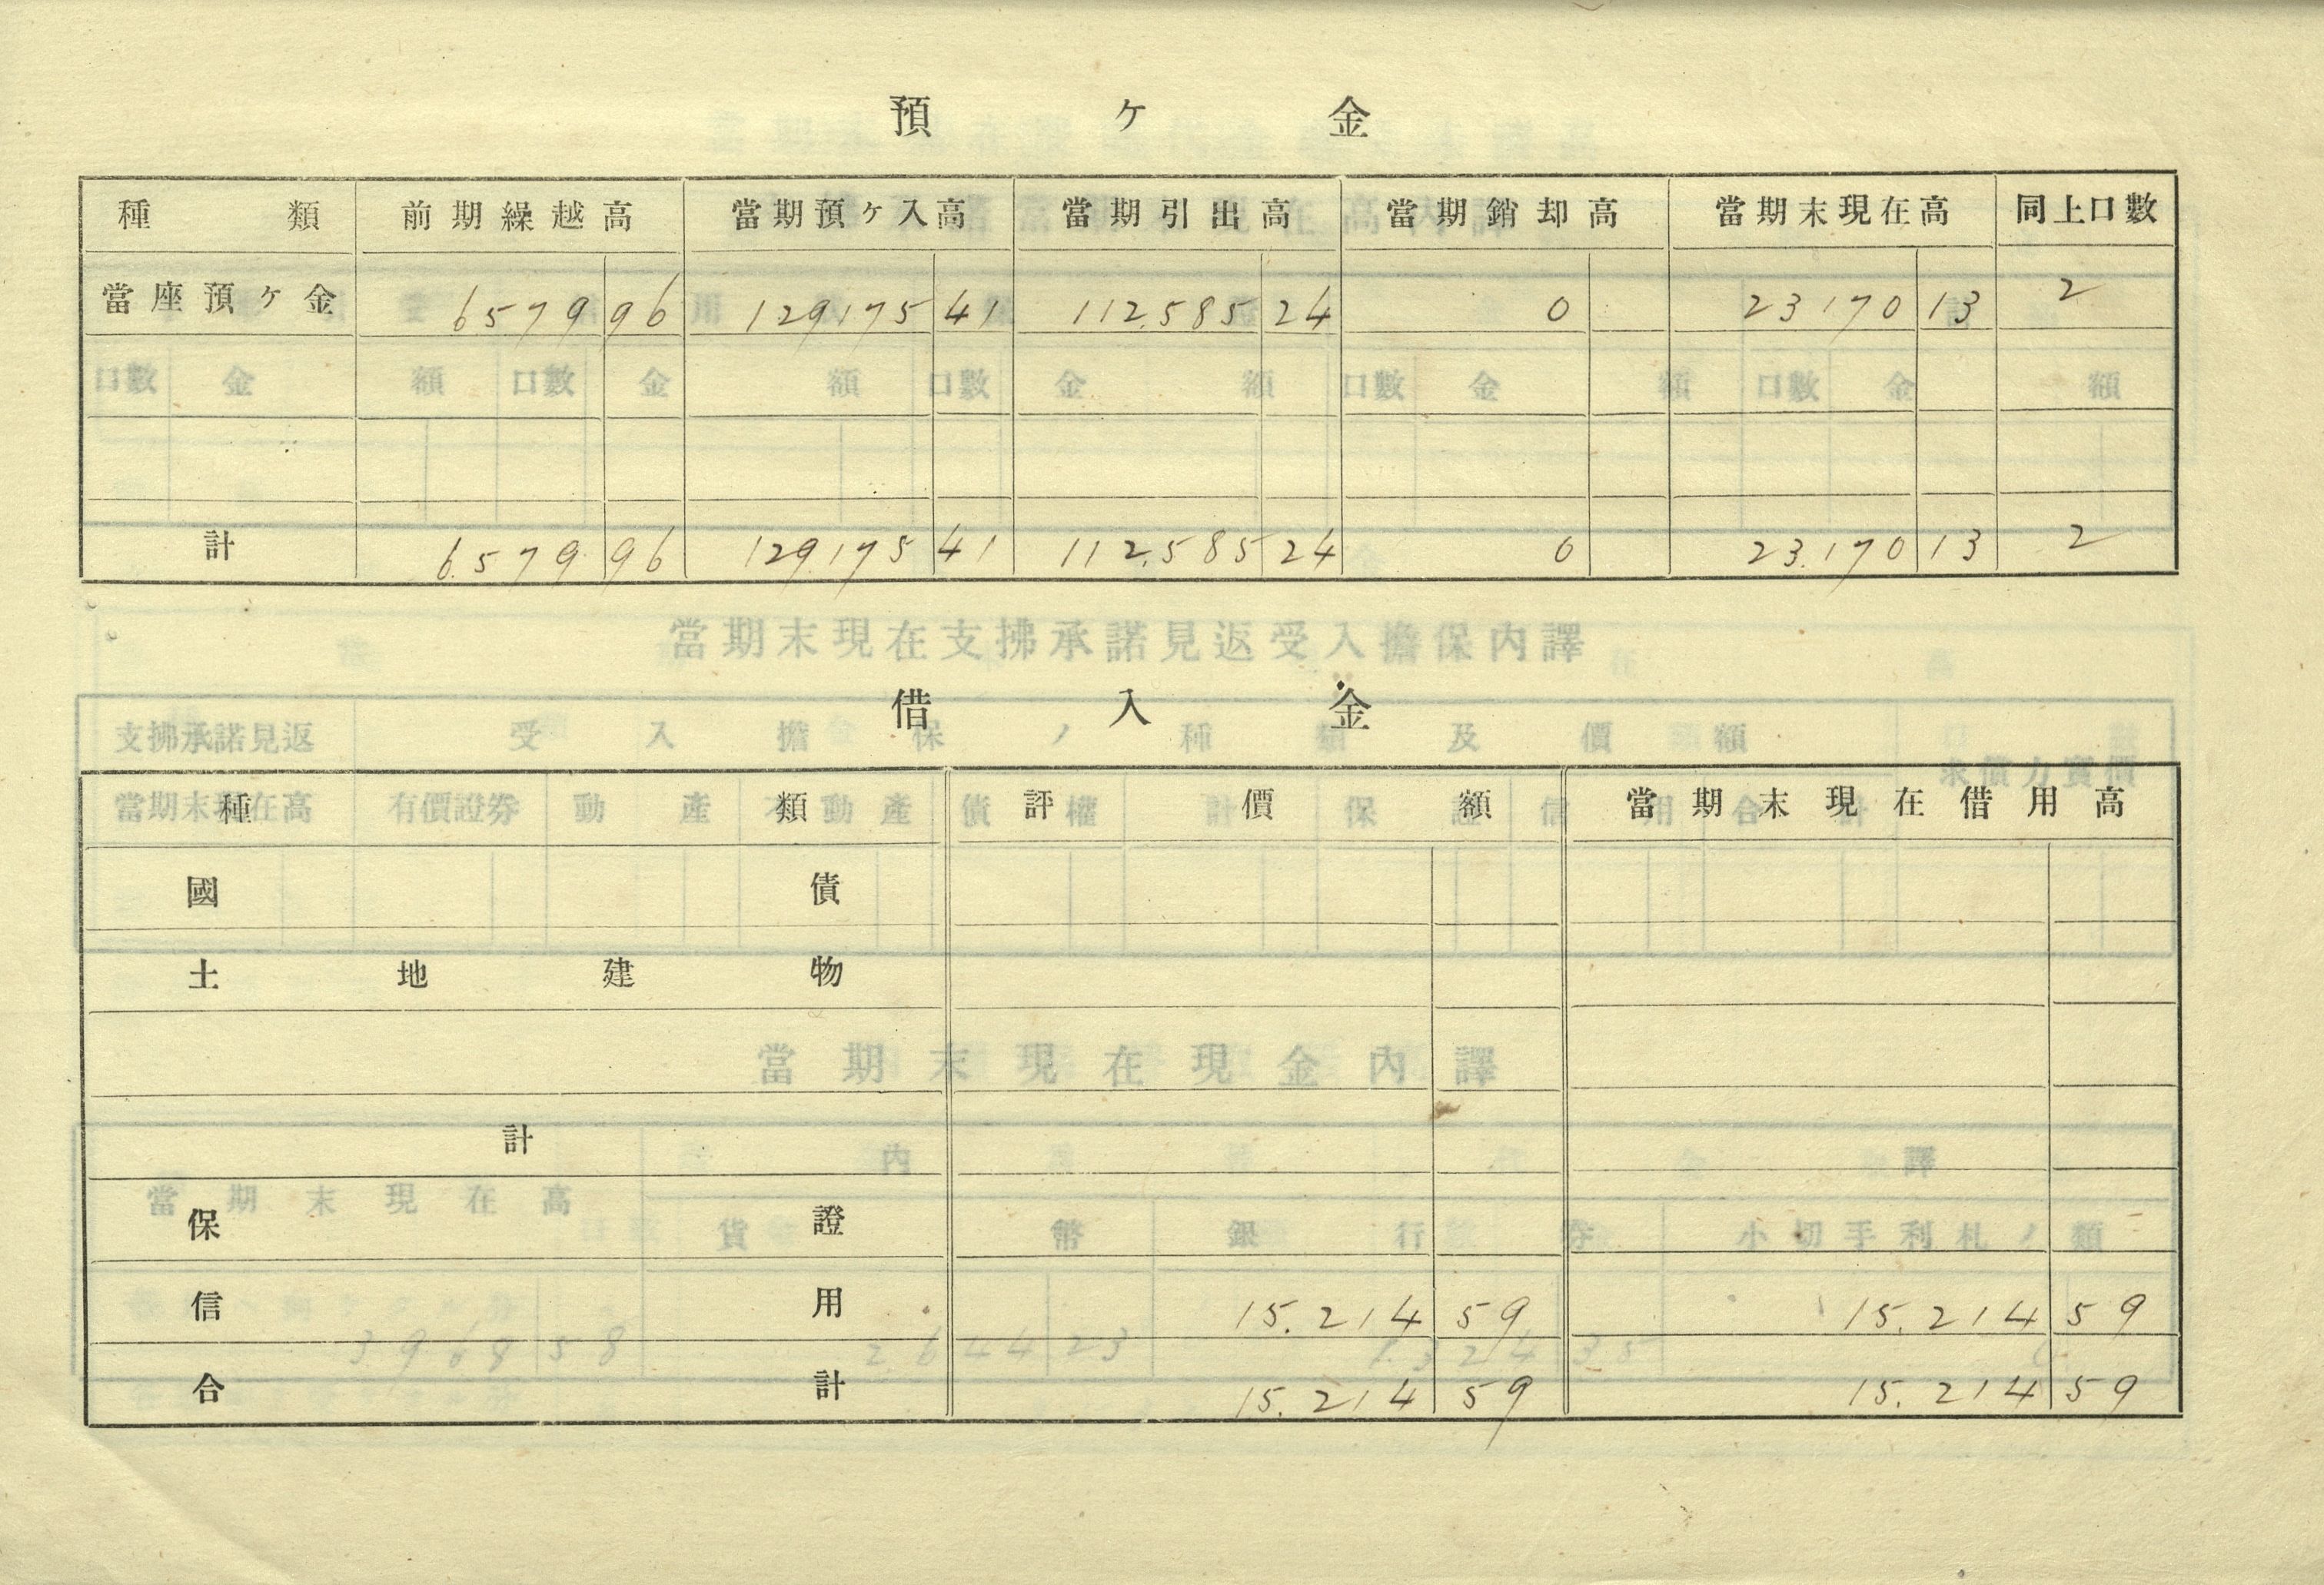 預ケ金
種類 前期繰越高 當期預ケ入高 當期引出高 當期銷却高 當期末現在高 同上口數
當座預ケ金 6579 96 129,175 41 112,585 24 0 23170 13 2
計 6.579 96 129,175 41 112,585 24 0 23,170 13 2
借入金
種類 評價額 當期末現在借用高
國債
土地建物
計
保證
信用 15.214 59 15.214 59
合計 15.214 59 15.214 59